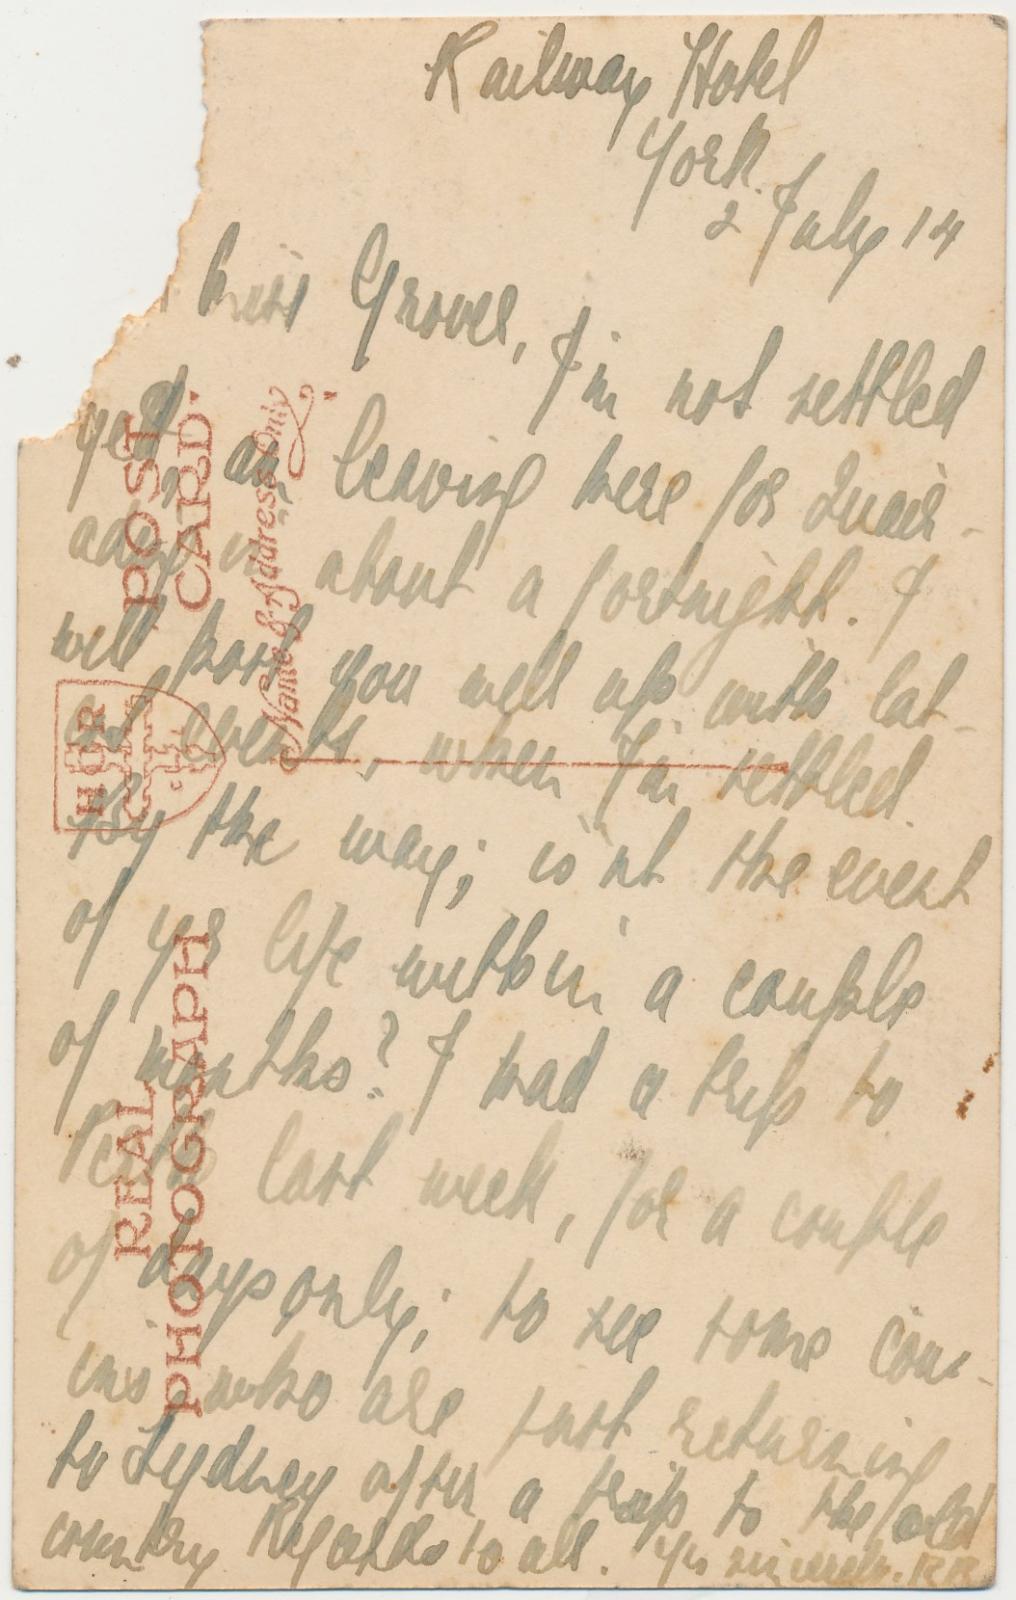 Railway Hotel
York.
2 July 14
Miss Grover, I'm not settled
yet, am leaving here for Quair-
ading in about a fortnight. I
will post you well up with lat-
est events, when I'm settled.
By the way; is'nt the event
of yr life within a couple
of months? I had a trip to
Perth last week, for a couple
of days only; to see some cous-
ins who are just returning
to Sydney after a trip to the old
country Regards to all. Yrs sincerely. RB
POST
CARD.
Name & Address Only
REAL
PHOTOGRAPH